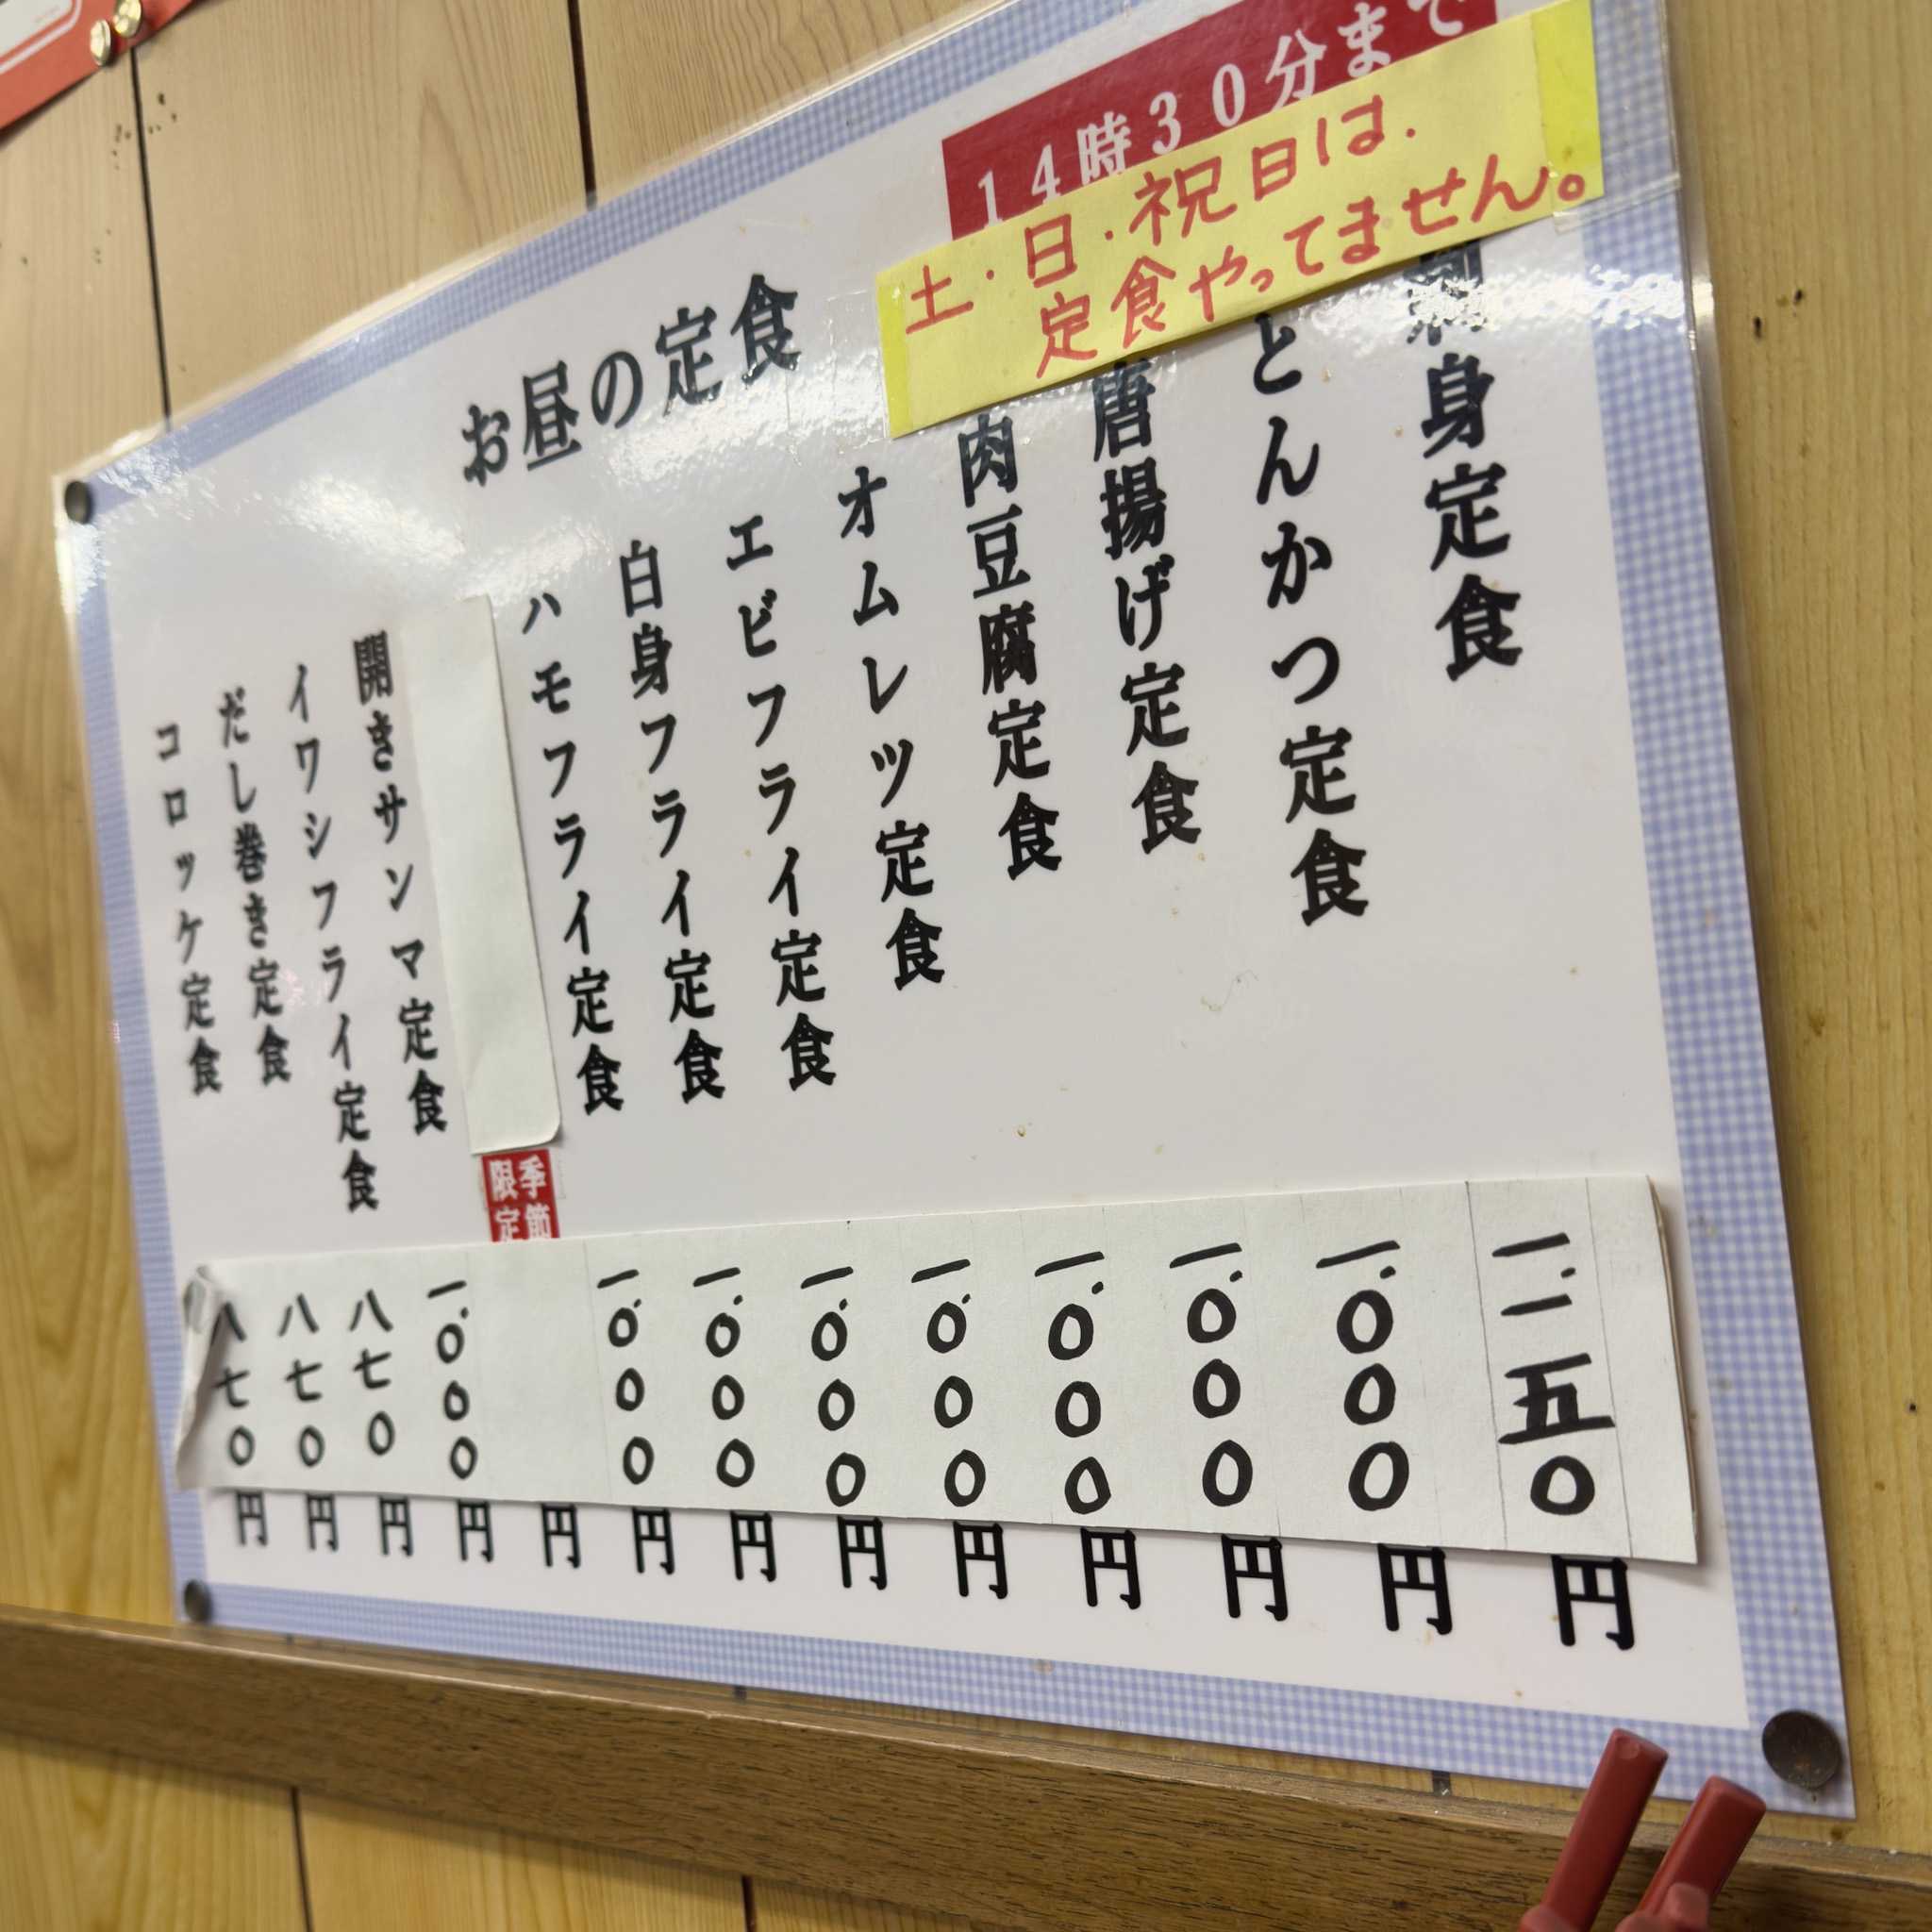 14時30分まで
土・日・祝日は.
定食やってません。
お昼の定食
身定食
とんかつ定食
唐揚げ定食
肉豆腐定食
オムレツ定食
エビフライ定食
白身フライ定食
ハモフライ定食
季節
限定
開きサンマ定食
イワシフライ定食
だし巻き定食
コロッケ定食
一、二五〇円
一、〇〇〇円
一、〇〇〇円
一、〇〇〇円
一、〇〇〇円
一、〇〇〇円
一、〇〇〇円
一、〇〇〇円
円
一、〇〇〇円
八七〇円
八七〇円
八七〇円